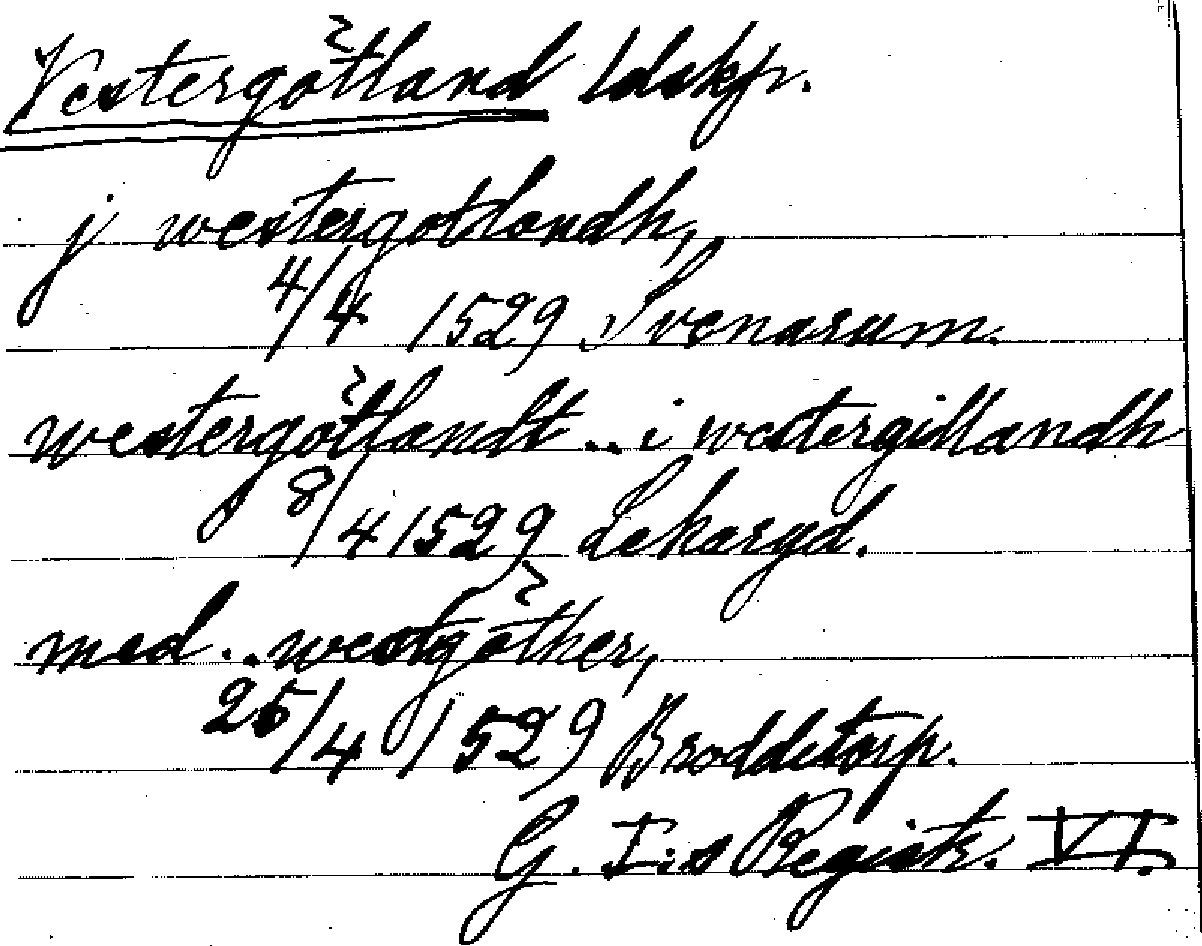 Vestergötland ldskp.
j westergotlandh,
4/4 1529 Svenarum.
westergötlandt .. i westergillandh
8/4 1529 Lekaryd.
med .. westgöther,
25/4 1529 Broddetorp.
G. I:s Registr. VI.